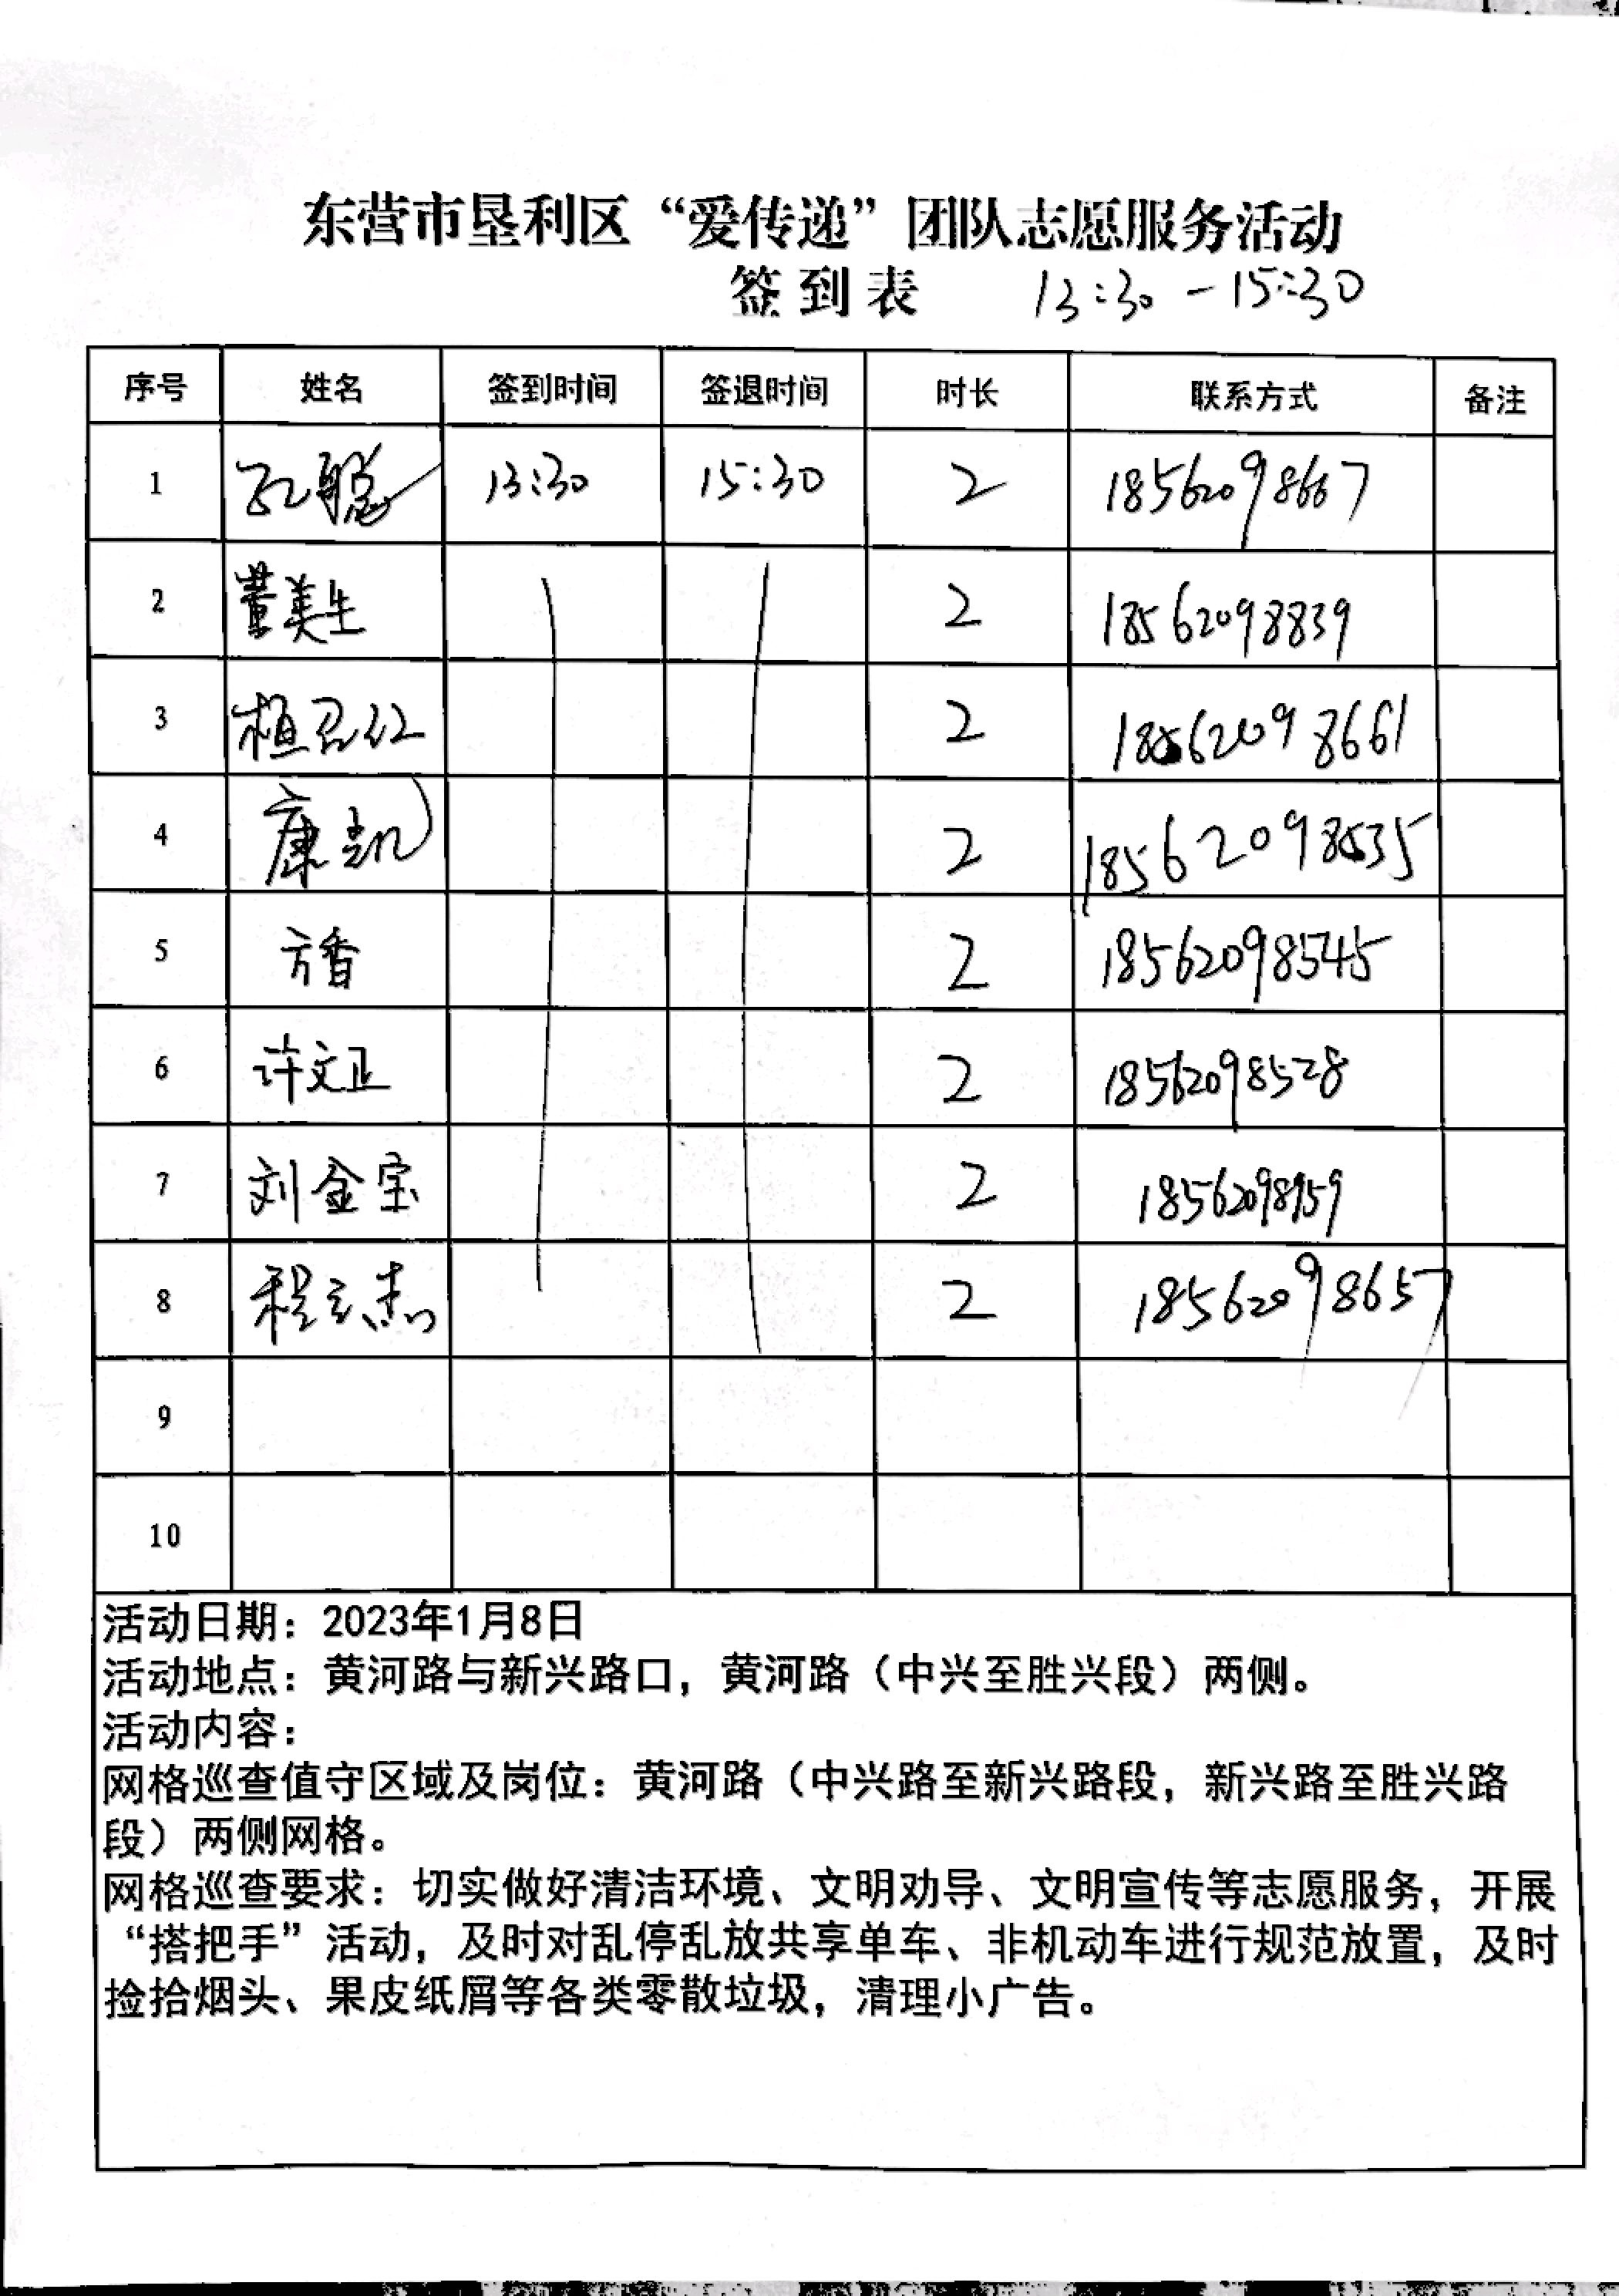 东营市垦利区“爱传递”团队志愿服务活动
签到表 13:30-15:30
序号 姓名 签到时间 签退时间 时长 联系方式 备注
1 聪 13:30 15:30 2 18562098667
2 董美生 2 18562098839
3 红 2 18562098661
4 康凯 2 18562098535
5 方香 2 18562098545
6 许文正 2 18562098528
7 刘金宝 2 18562098959
8 程志杰 2 18562098657
9
10
活动日期：2023年1月8日
活动地点：黄河路与新兴路口，黄河路（中兴至胜兴段）两侧。
活动内容：
网格巡查值守区域及岗位：黄河路（中兴路至新兴路段，新兴路至胜兴路
段）两侧网格。
网格巡查要求：切实做好清洁环境、文明劝导、文明宣传等志愿服务，开展
“搭把手”活动，及时对乱停乱放共享单车、非机动车进行规范放置，及时
捡拾烟头、果皮纸屑等各类零散垃圾，清理小广告。